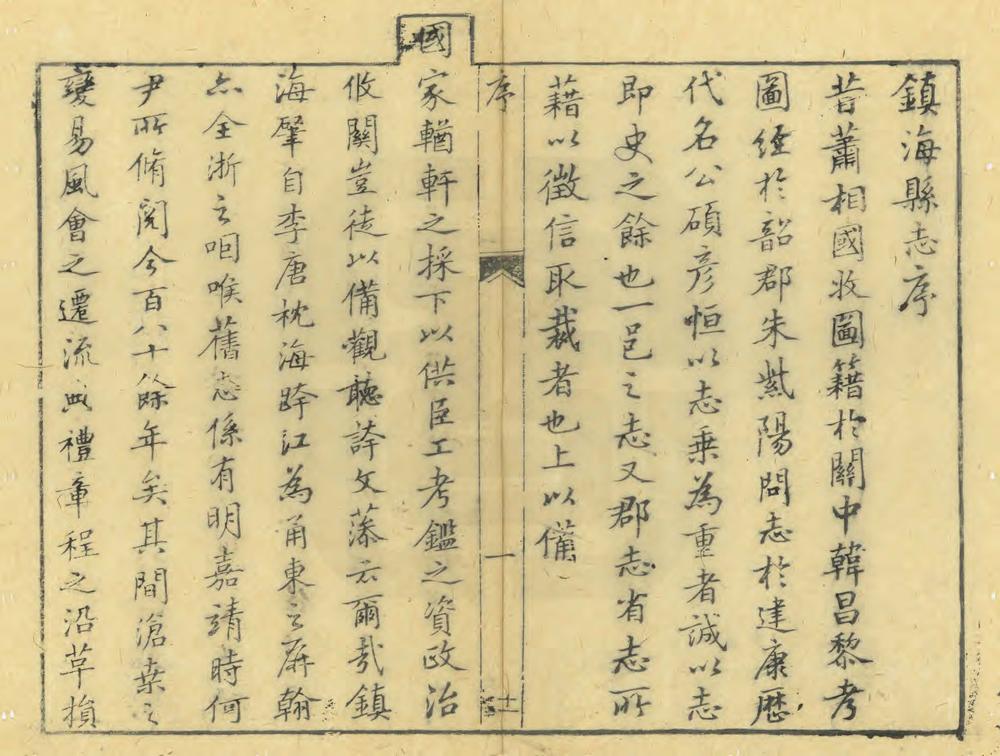 鎮海縣志序
昔蕭相國收圖籍於關中韓昌黎考
圖經於韶郡朱紫陽問志於建康歷
代名公碩彥恒以志乗為重者誠以志
即史之餘也一邑之志又郡志省志所
藉以徵信取裁者也上以備
序
一
國家輶軒之採下以供臣工考鑑之資政治
攸關豈徒以備觀聽誇文藻云爾哉鎮
海肇自李唐枕海跨江為甬東之屏翰
亦全浙之咽喉舊志係有明嘉靖時何
尹所脩閱今百八十餘年矣其間滄桑之
變易風會之遷流典禮章程之沿革損